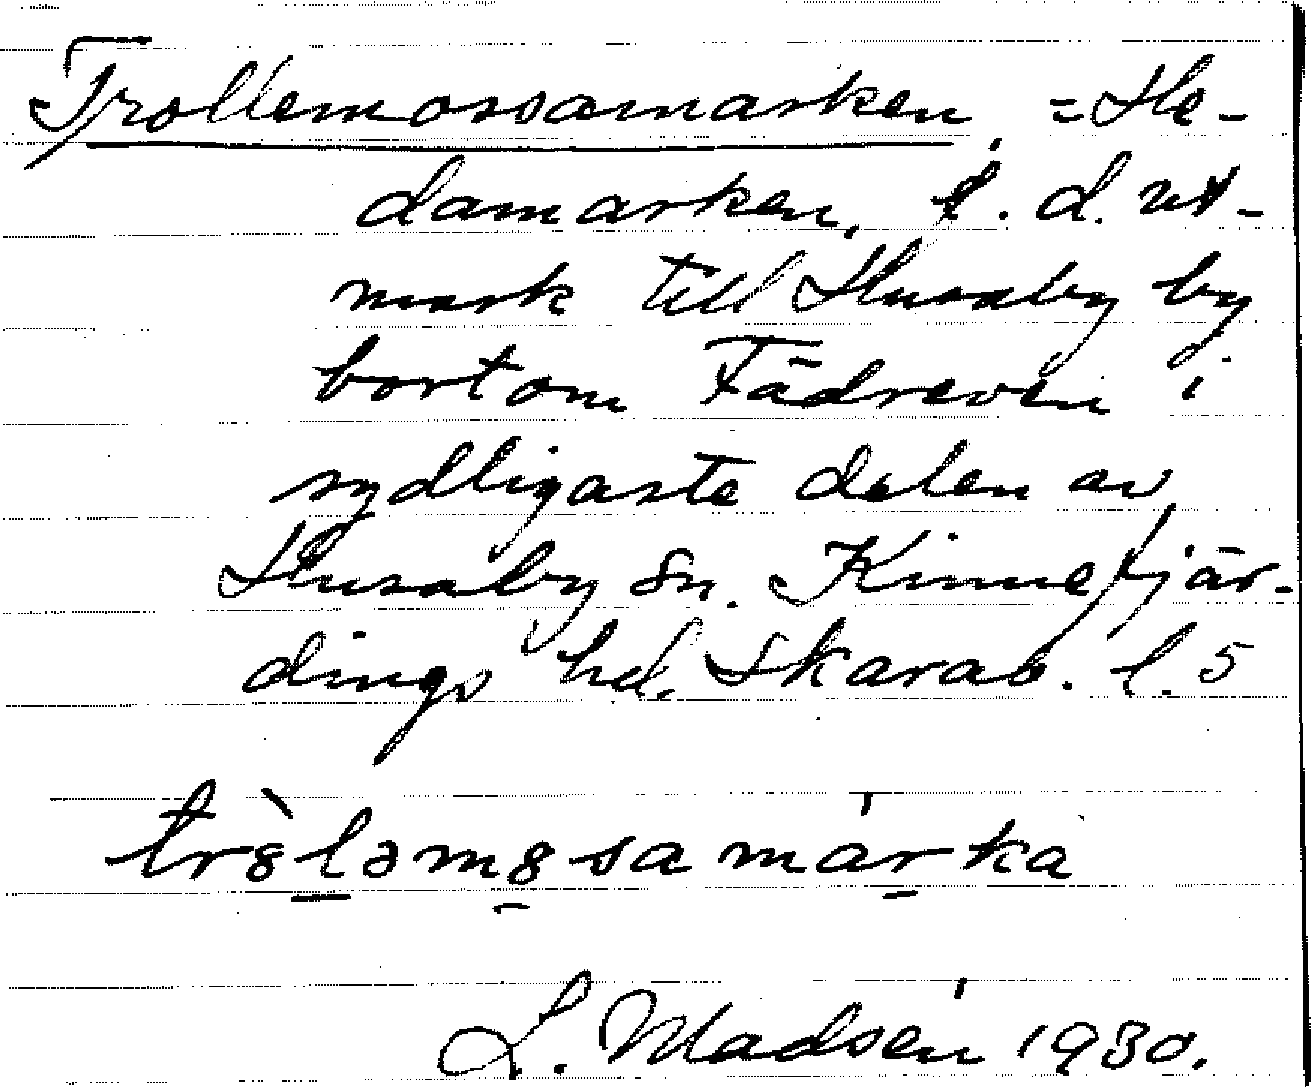 Trollemossamarken, = He-
damarken, f. d. ut-
mark till Husaby by
bortom Fädreven i
sydligaste delen av
Husaby sn. Kinnefjär-
dings hd. Skarab. l. 5
tr8̀ləm8samárka
L. Madsén 1930.